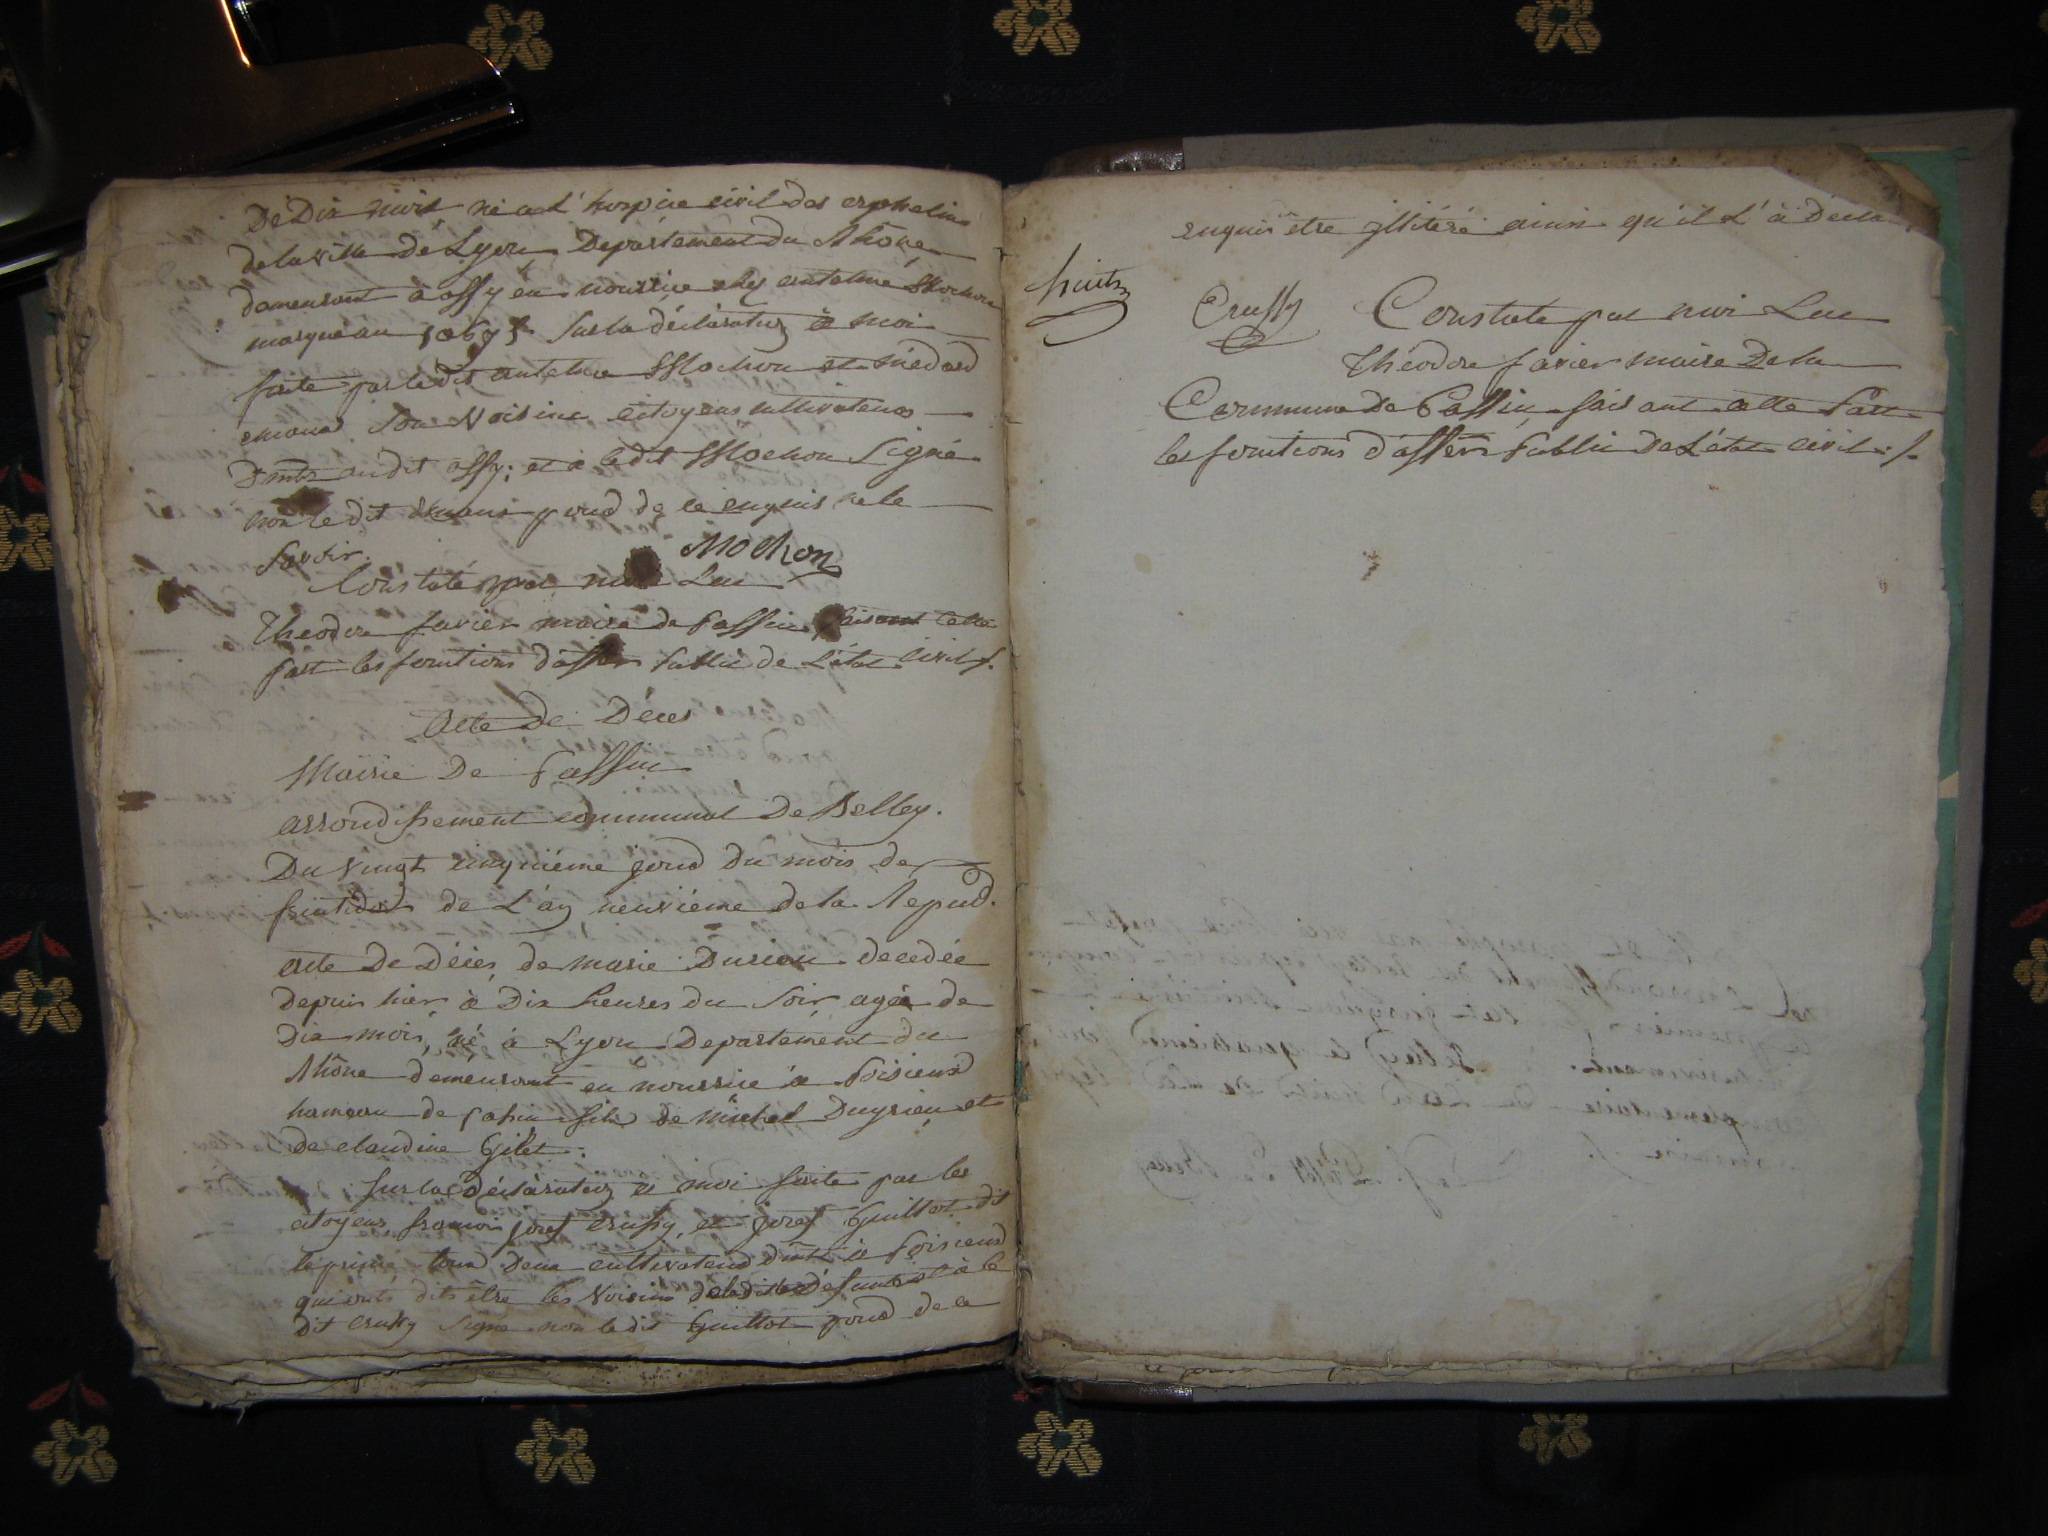 De Dix mois né a L'hospice civil des orphelins
de la ville de Lyon Département du Rhône
demeurant à ossy en nourrice chez antelme Mochon
marque au sur la déclaration à moi
faite par ledit antelme Mochon et médard
emona son Voisine citoyens cultivateurs
Dmts audit ossy; et à ledit Mochon Signé
non le dit emona pour de ce enquis ne le
savoir.
Mochon
Constaté par moi Luc
Theodore favier maire de Passin faisant cette
part les fonctions d'affier Public de L'état Civil ./.
Acte De Décès
Mairie De Passin
arrondissement communal De Belley.
Du Vingt cinquième jour du mois de
fructidor de L'an neuvième de la Repub.
acte De Décès de marie Durieu decedée
depuis hier à Dix heures du Soir, agée de
dix mois, né à Lyon Departement du
Rhône demeurant en nourrice à Poisieux
hameau de Passin fille de michel Duyrieu et
de claudine Gilet.
Sur la déclaration à moi faite par les
citoyens francois josef Crussy, et josef Guillot dit
le prince tous deux cultivateurs dmts à Poisieux
qui onts dits être les Voisins de ladite Défunte et à le
dit Crussy Signé non le dit Guillot pour de ce
enquis être illitéré ainsi qu'il L'à Décla
huit
Crussy
Constaté par moi Luc
Théodore favier maire De la
Commune De Passin, faisant cette Part
les fonctions d'affier Public De L'état civil ./.